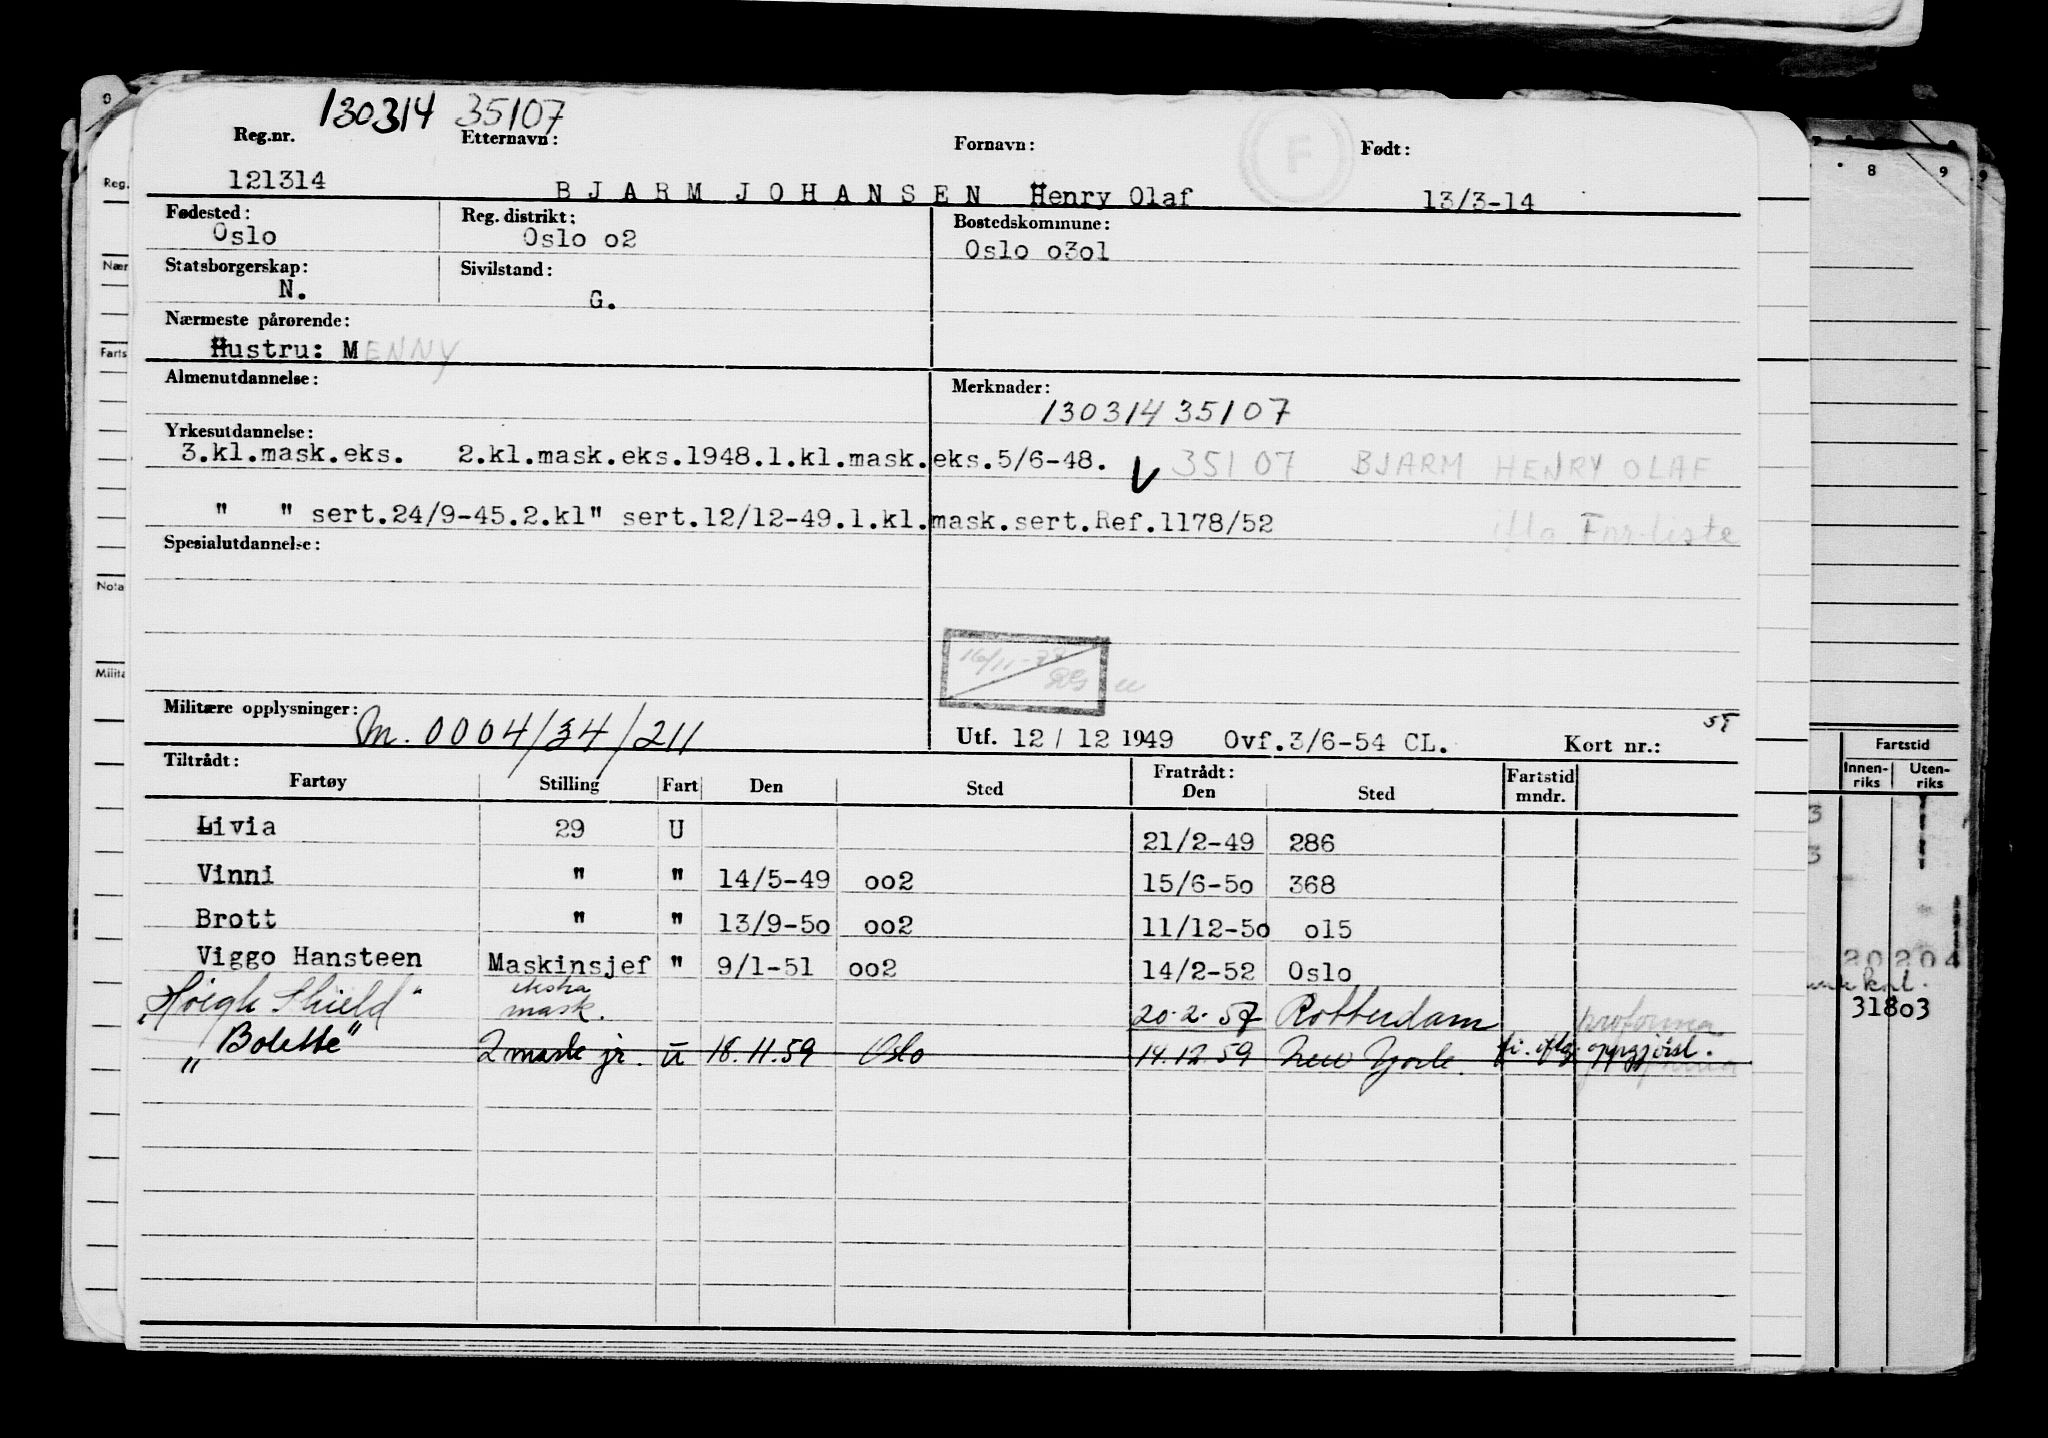 130314 35107
Reg.nr. Etternavn: Fornavn: Født:
F
121314 BJARM JOHANSEN Henry Olaf 13/3-14
Fødested: Reg. distrikt: Bostedskommune:
Oslo Oslo o2 Oslo o3o1
Statsborgerskap: Sivilstand:
N. G.
Nærmeste pårørende:
Hustru: MENNY
Almenutdannelse: Merknader:
130314 35107
Yrkesutdannelse:
3.kl.mask.eks. 2.kl.mask.eks.1948.1.kl.mask.eks.5/6-48. V 35107 BJARM HENRY OLAF
" " sert.24/9-45.2.kl" sert.12/12-49.1.kl.mask.sert.Ref.1178/52
Spesialutdannelse:
Militære opplysninger: M. 0004/34/211
Utf. 12 / 12 1949 Ovf.3/6-54 CL. Kort nr.:
Tiltrådt: Fratrådt:
Fartøy Stilling Fart Den Sted Den Sted Fartstid mndr.
Livia 29 U 21/2-49 286
Vinni " " 14/5-49 oo2 15/6-5o 368
Brott " " 13/9-5o oo2 11/12-5o o15
Viggo Hansteen Maskinsjef " 9/1-51 oo2 14/2-52 Oslo
"Høigh Shield" ekstra mask. 20.2.57 Rotterdam proforma
"Bolette" 2 mask jr. U 18.11.59 Oslo 14.12.59 New York. oppgjørsl.
Reg.
Nær
Farts
Nota
Milita
8 9
Fartstid
Innen-riks Uten-riks
20204
31803